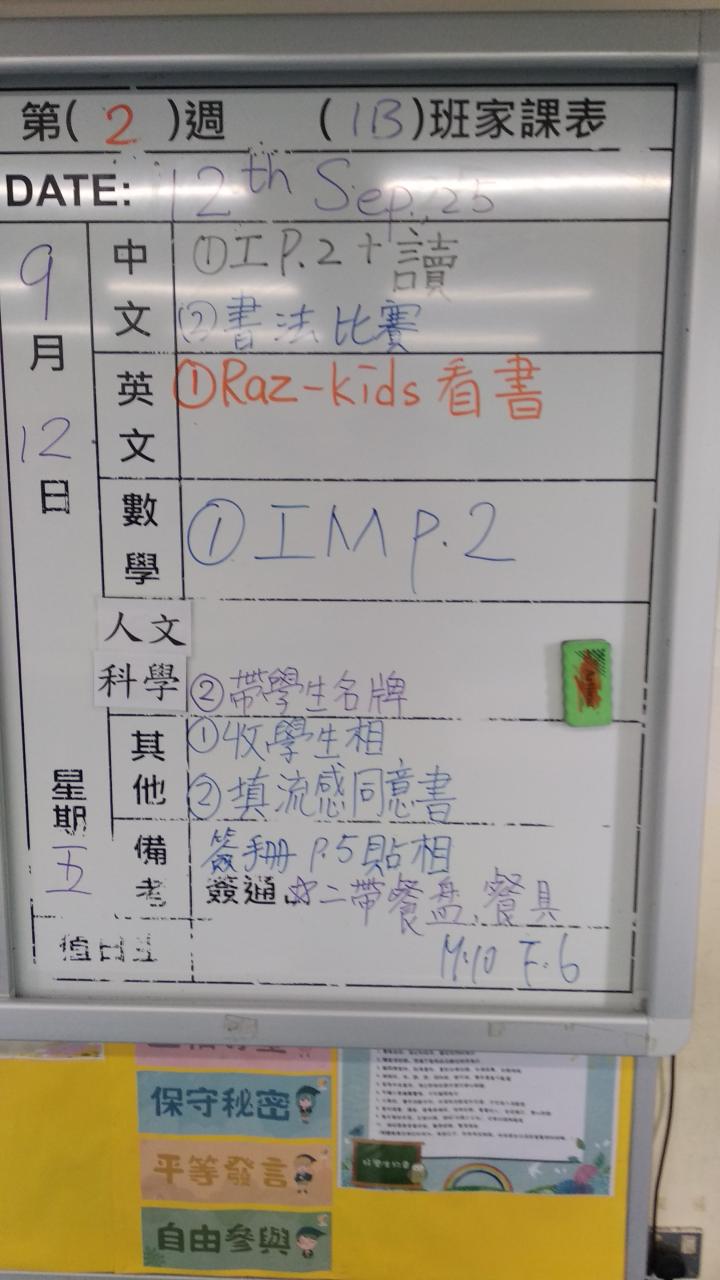 第(2)週 (1B)班家課表
DATE: 12th Sep.,25
9月12日
星期五
中文
①IP.2+讀
②書法比賽
英文
①Raz-kids看書
數學
①IMP.2
人文科學
②帶學生名牌
其他
①收學生相
②填流感同意書
備考
簽手冊 P.5貼相
簽通 ☆二帶餐盤、餐具
值日生
M.10 F.6
保守秘密
平等發言
自由參與